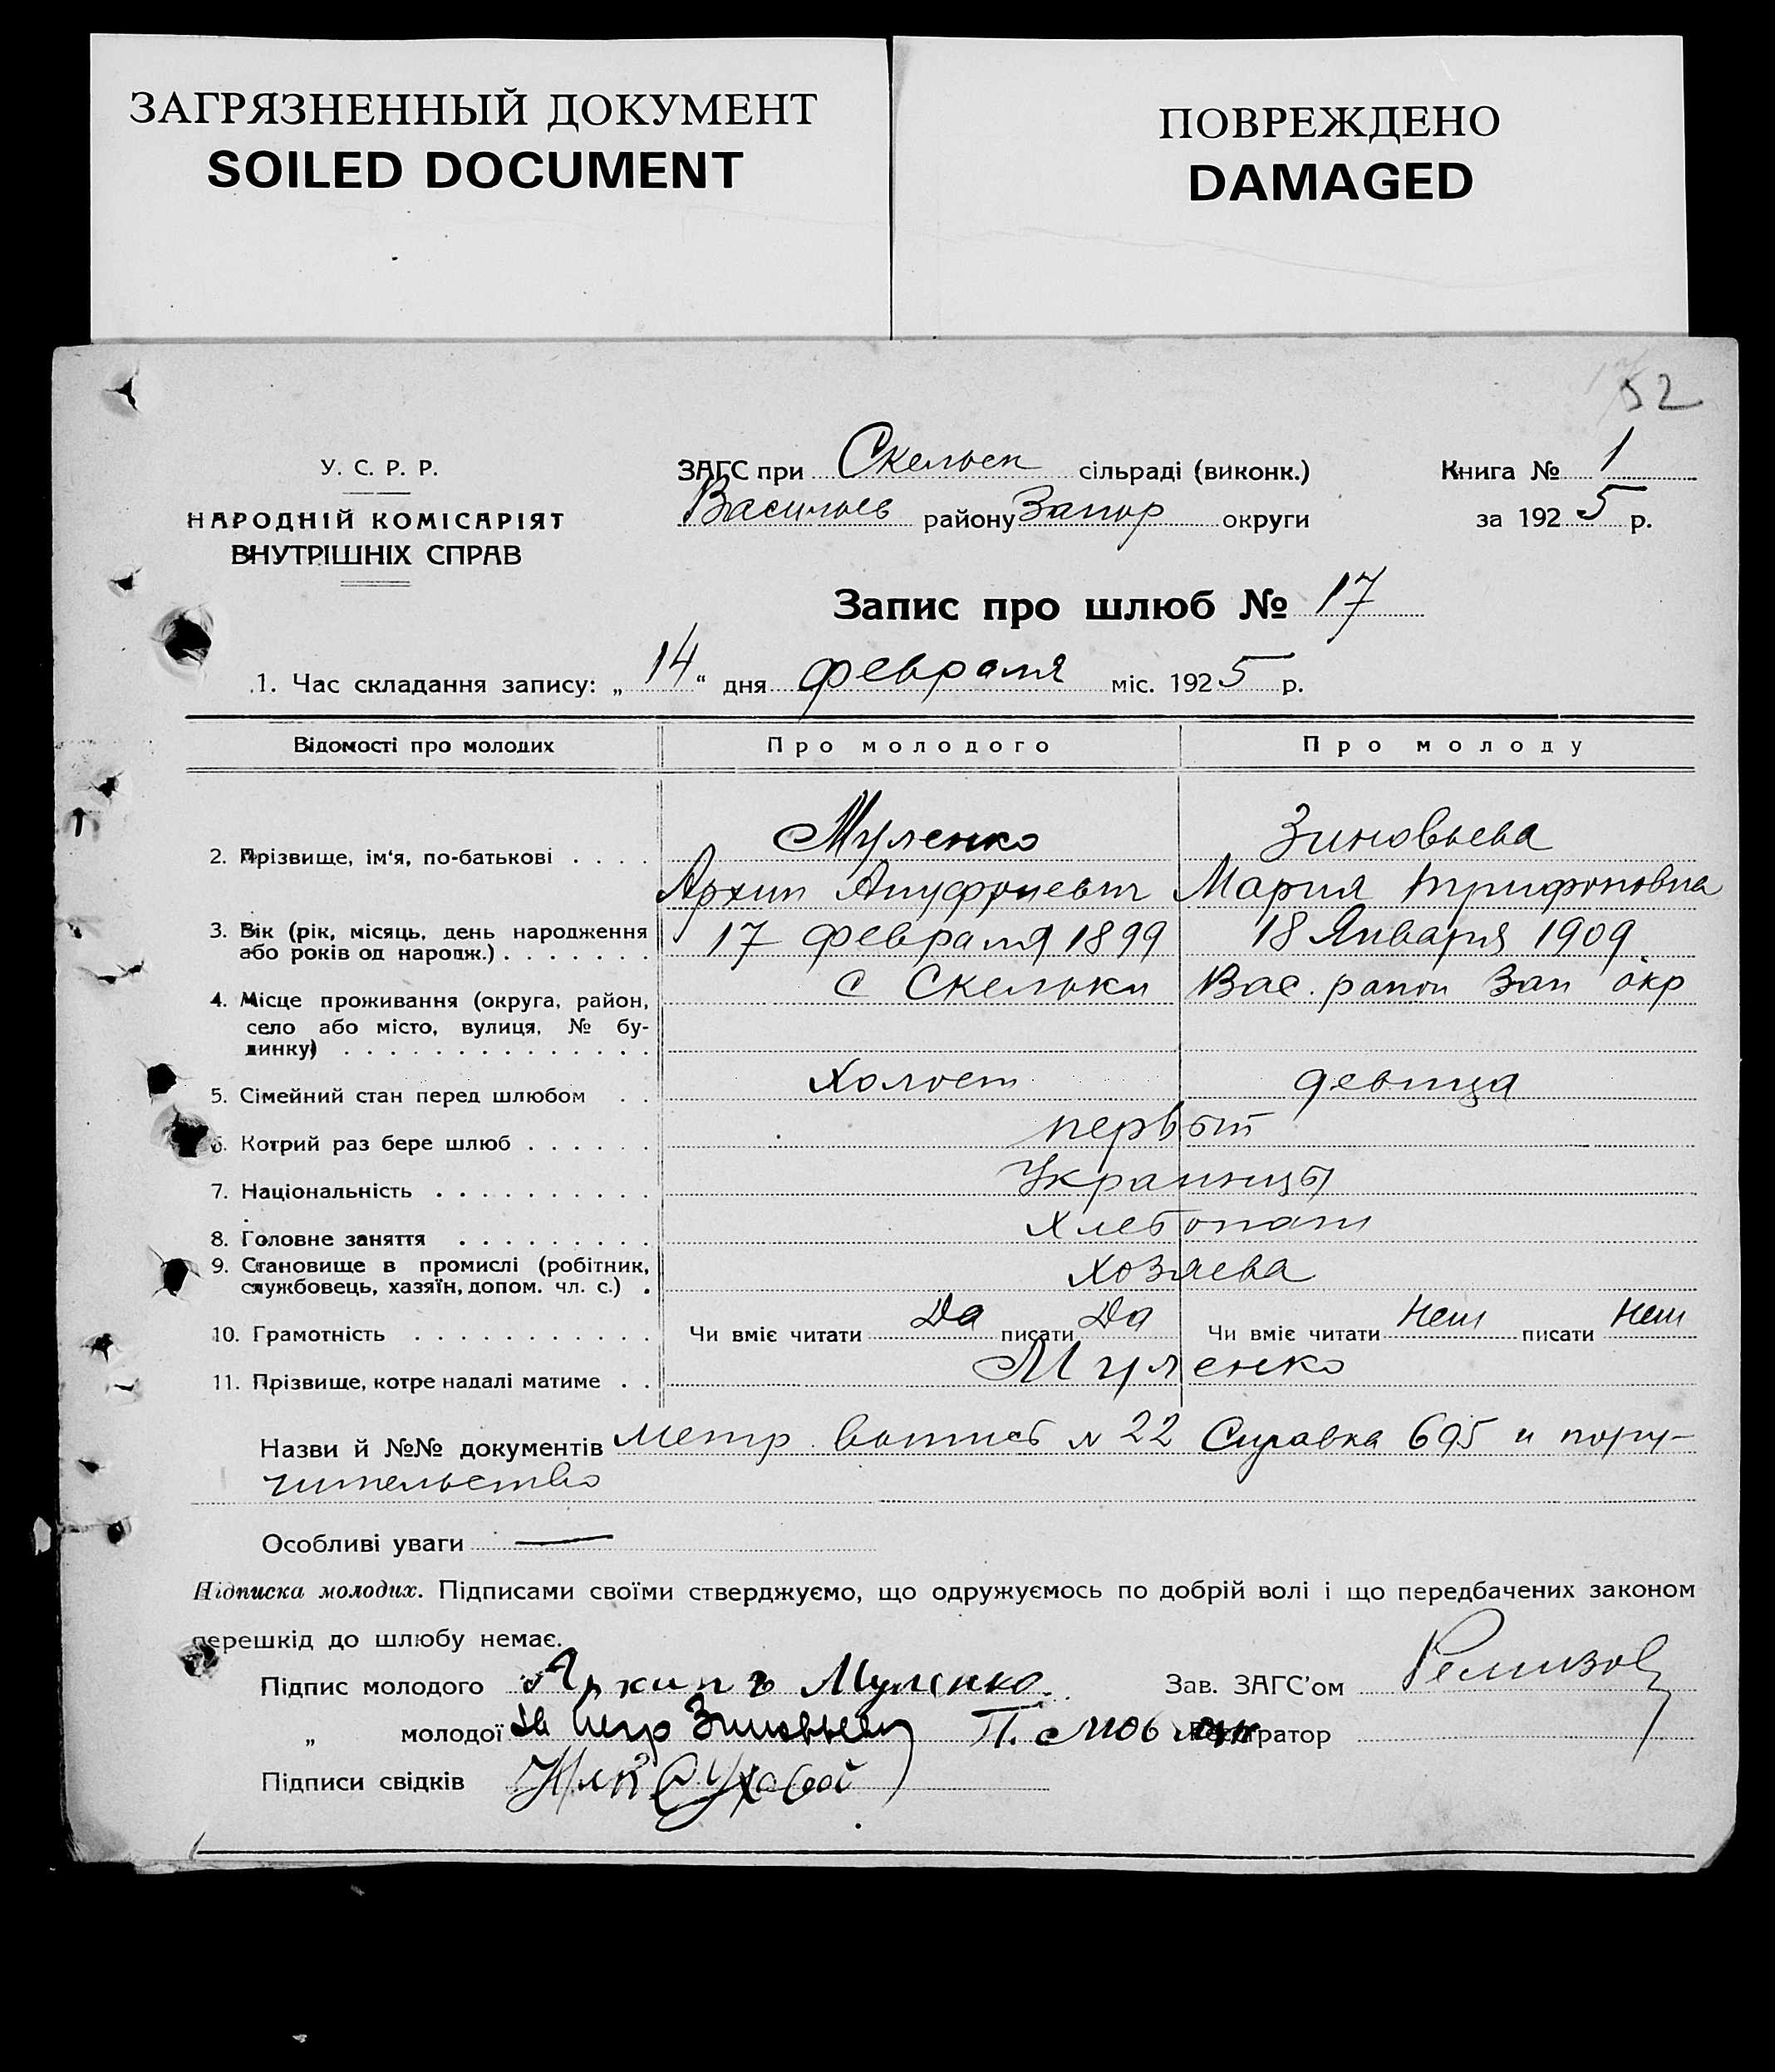 ЗАГРЯЗНЕННЫЙ ДОКУМЕНТ
SOILED DOCUMENT
ПОВРЕЖДЕНО
DAMAGED
52
У. С. Р. Р.
НАРОДНІЙ КОМІСАРІЯТ
ВНУТРІШНІХ СПРАВ
ЗАГС при Скельск сільраді (виконк.)
Васильев району Запор округи
Книга № 1
за 1925 р.
Запис про шлюб № 17
1. Час складання запису: „14“ дня февраля міс. 1925 р.
Відомості про молодих Про молодого Про молоду
2. Прізвище, ім'я, по-батькові . . . . Муленко Зиновьева
Архип Мария Трифоновна
3. Вік (рік, місяць, день народження 17 февраля 1899 18 Января 1909
або років од народж.) . . . . . . .
4. Місце проживання (округа, район, с Скельки Вас. район Зап окр
село або місто, вулиця, № бу-
динку) . . . . . . . . . . . . . .
5. Сімейний стан перед шлюбом . . Холост девица
6. Котрий раз бере шлюб . . . . . . первый
7. Національність . . . . . . . . . . Украинцы
8. Головне заняття . . . . . . . . . Хлебопаш
9. Становище в промислі (робітник, хозяева
службовець, хазяїн, допом. чл. с.) .
10. Грамотність . . . . . . . . . . . Чи вміє читати Да писати Да Чи вміє читати Нет писати Нет
11. Прізвище, котре надалі матиме . . Муленко
Назви й №№ документів метр выпись № 22 Справка 695 и пору-
чительство
Особливі уваги —
Підписка молодих. Підписами своїми стверджуємо, що одружуємось по добрій волі і що передбачених законом
перешкід до шлюбу немає.
Підпис молодого Архипъ Муленко Зав. ЗАГС'ом Ремизов
„ молодої за негр Зиновьеву Регістратор
Підписи свідків